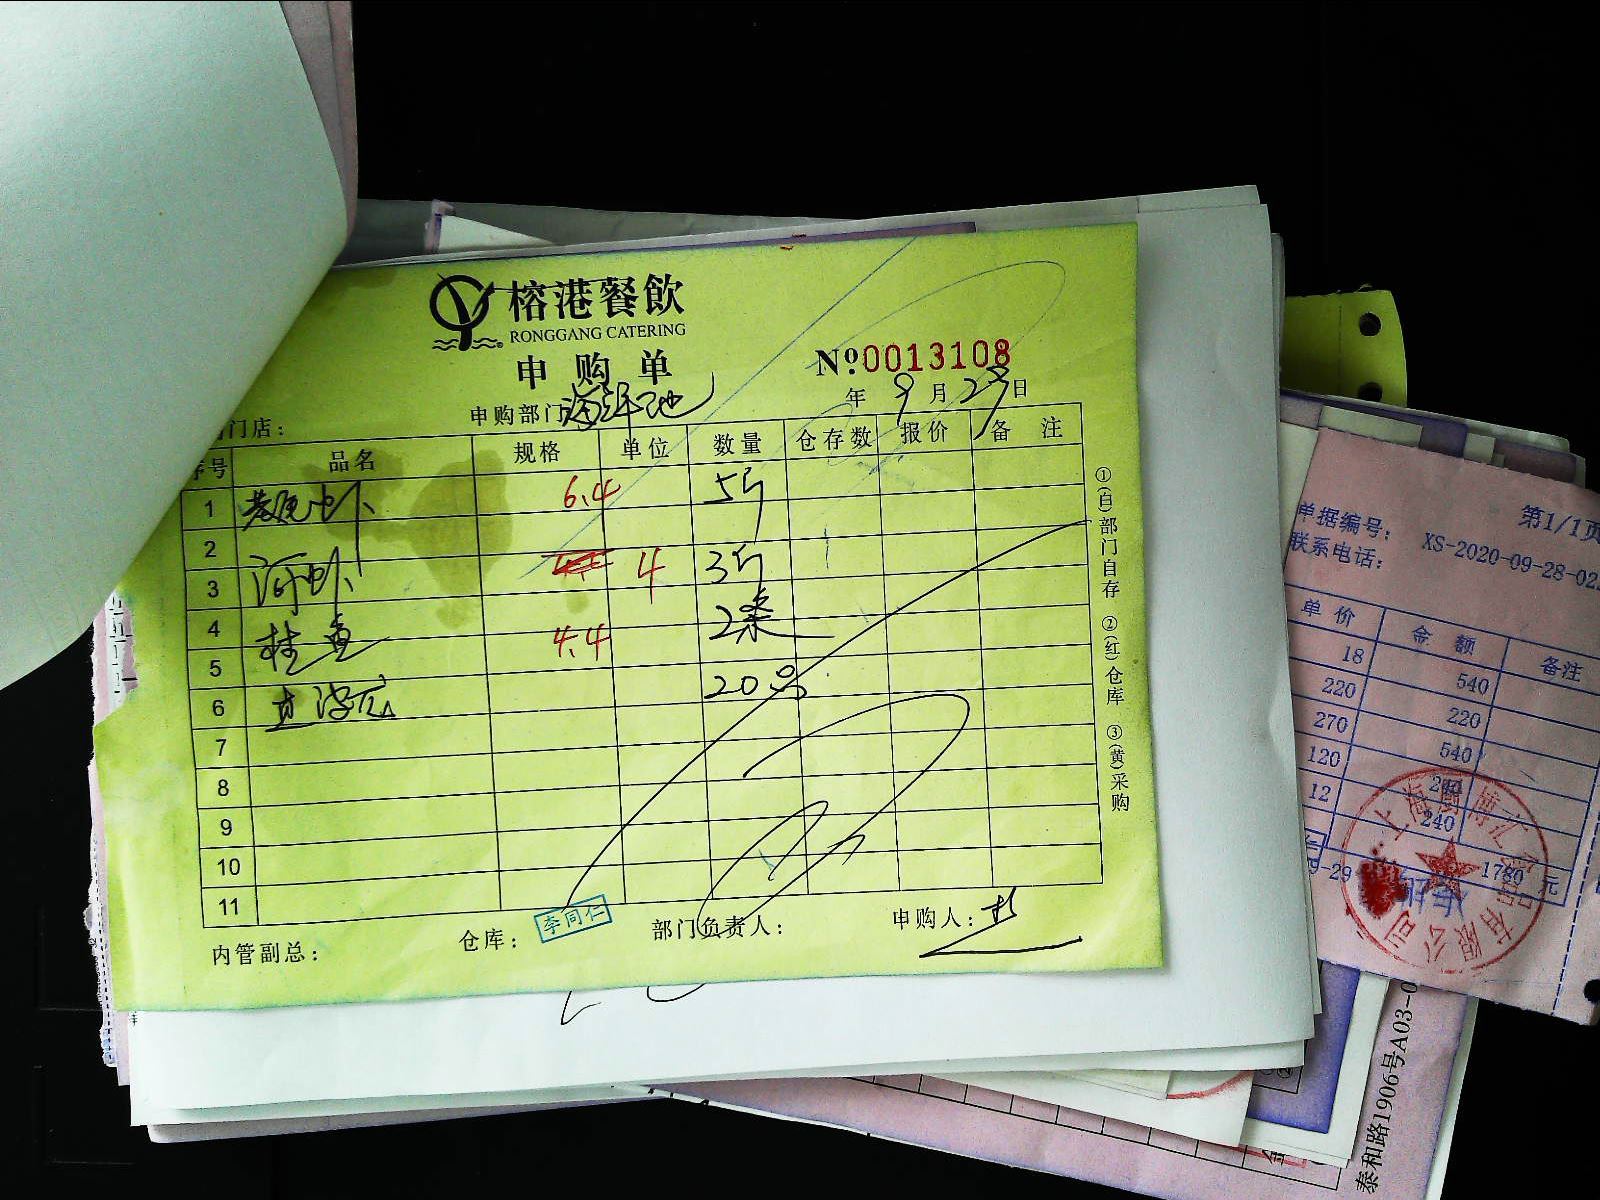 榕港餐飲
RONGGANG CATERING
申购单
№0013108
门店：
申购部门 海洋池
年 9月 29日
序号 品名 规格 单位 数量 仓存数 报价 备注
1 基尾虾 6.4 5斤
2
3 河虾 4 3斤
4 桂鱼 4.4 2条
5
6 20只
7
8
9
10
11
内管副总：
仓库： 李同仁
部门负责人：
申购人：
①(白)部门自存 ②(红)仓库 ③(黄)采购
第1/1页
单据编号： XS-2020-09-28-02
联系电话：
单价 金额 备注
18 540
220 220
270 540
120 240
12 240
1780 元
9-29
泰和路1906号A03-0